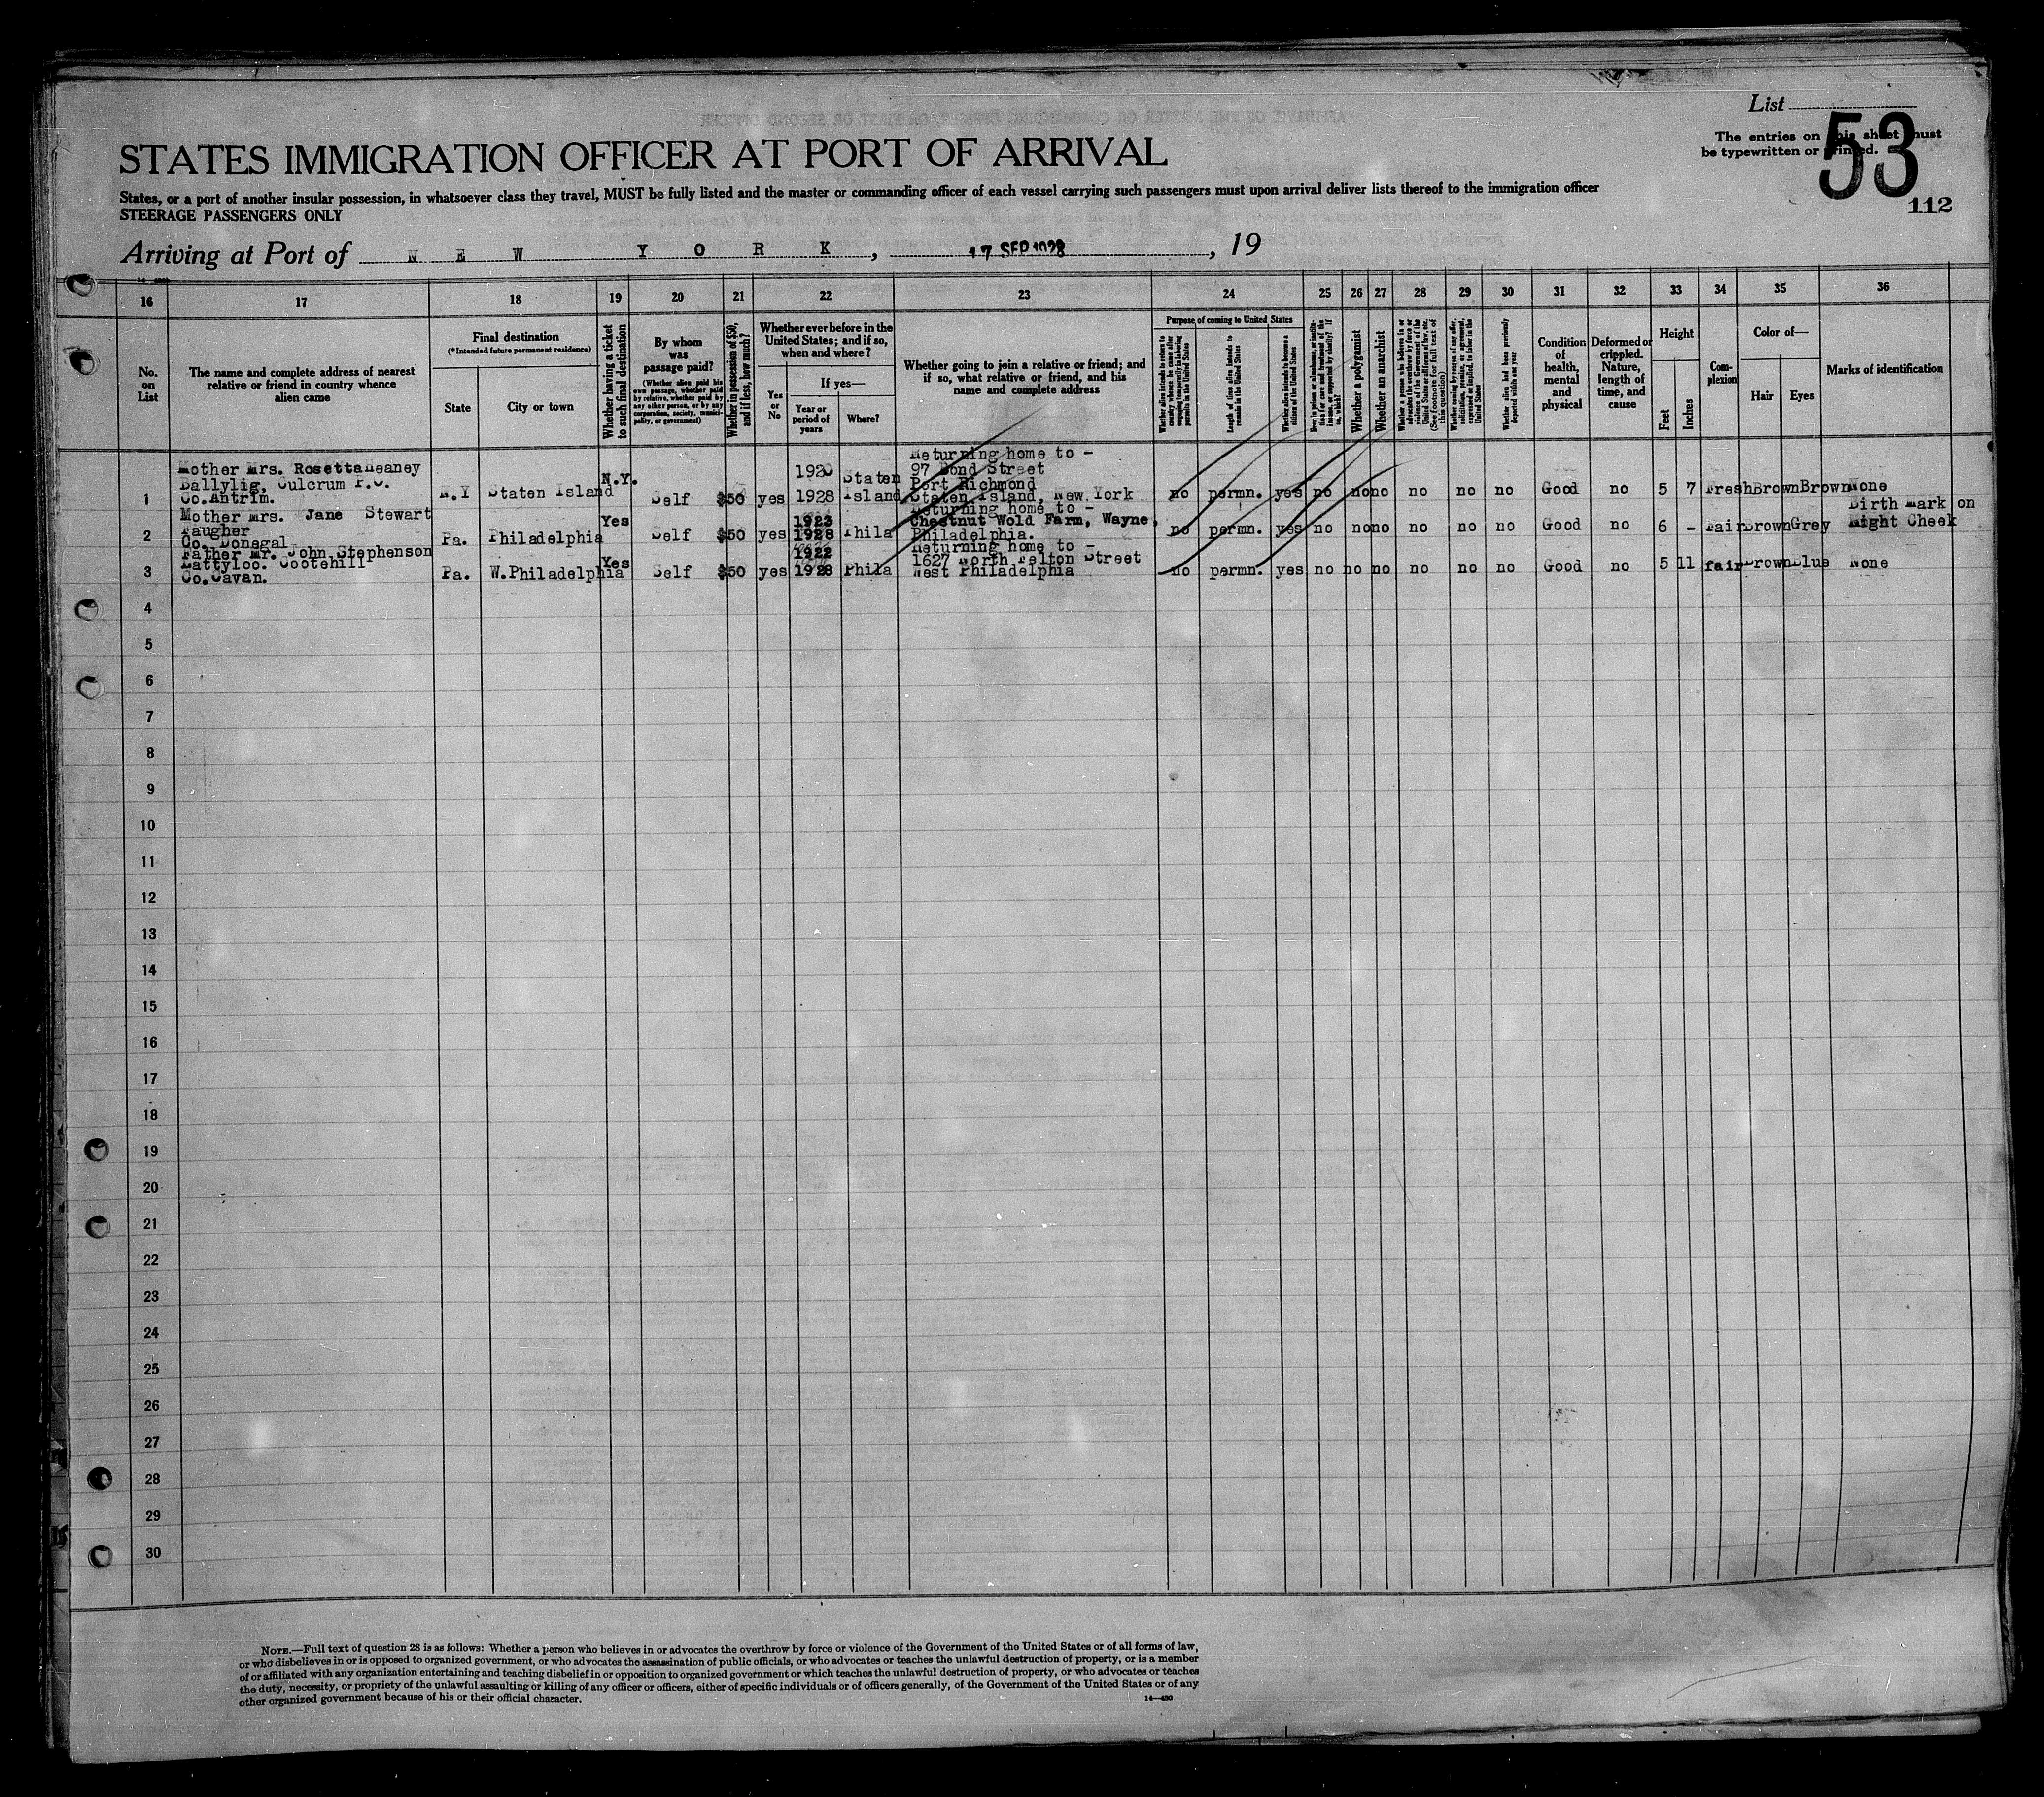 List
The entries on this sheet must
be typewritten or printed.
53
112
STATES IMMIGRATION OFFICER AT PORT OF ARRIVAL
States, or a port of another insular possession, in whatsoever class they travel, MUST be fully listed and the master or commanding officer of each vessel carrying such passengers must upon arrival deliver lists thereof to the immigration officer
STEERAGE PASSENGERS ONLY
Arriving at Port of NEW YORK, 17 SEP 1928, 19
16 17 18 19 20 21 22 23 24 25 26 27 28 29 30 31 32 33 34 35 36
No. on List
The name and complete address of nearest relative or friend in country whence alien came
Final destination
(*Intended future permanent residence)
State
City or town
Whether having a ticket to such final destination
By whom was passage paid?
(Whether alien paid his own passage, whether paid by relative, whether paid by any other person, or by any corporation, society, municipality, or government)
Whether in possession of $50, and if less, how much?
Whether ever before in the United States; and if so, when and where?
Yes or No
If yes—
Year or period of years
Where?
Whether going to join a relative or friend; and if so, what relative or friend, and his name and complete address
Purpose of coming to United States
Whether alien intends to return to country whence he came after engaging temporarily in laboring pursuits in the United States
Length of time alien intends to remain in the United States
Whether alien intends to become a citizen of the United States
Whether a polygamist
Whether an anarchist
Whether alien had been previously deported within one year
Condition of health, mental and physical
Deformed or crippled. Nature, length of time, and cause
Height
Feet
Inches
Complexion
Color of—
Hair
Eyes
Marks of identification
Mother Mrs. Rosetta Heaney
Ballylig, Culcrum P.O.
Co.Antrim.
1 N.Y Staten Island N.Y. Self $50 yes 1920 1928 Staten Island
Returning home to -
97 Bond Street
Port Richmond
Staten Island, New York
no permn. yes no no no no no no Good no 5 7 Fresh Brown Brown None
Mother Mrs. Jane Stewart
Faugher
Co. Donegal
2 Pa. Philadelphia Yes Self $50 yes 1923 1928 Phila
Returning home to -
Chestnut Wold Farm, Wayne,
Philadelphia.
no permn. yes no no no no no no Good no 6 - Fair Brown Grey Birth Mark on Right Cheek
Father Mr. John Stephenson
Lattyloo. Cootehill
Co.Cavan.
3 Pa. W.Philadelphia Yes Self $50 yes 1922 1928 Phila
Returning home to -
1627 North Felton Street
West Philadelphia
no permn. yes no no no no no no Good no 5 11 fair Brown Blue None
4
5
6
7
8
9
10
11
12
13
14
15
16
17
18
19
20
21
22
23
24
25
26
27
28
29
30
NOTE.—Full text of question 28 is as follows: Whether a person who believes in or advocates the overthrow by force or violence of the Government of the United States or of all forms of law,
or who disbelieves in or is opposed to organized government, or who advocates the assassination of public officials, or who advocates or teaches the unlawful destruction of property, or is a member
of or affiliated with any organization entertaining and teaching disbelief in or opposition to organized government or which teaches the unlawful destruction of property, or who advocates or teaches
the duty, necessity, or propriety of the unlawful assaulting or killing of any officer or officers, either of specific individuals or of officers generally, of the Government of the United States or of any
other organized government because of his or their official character.
14—480